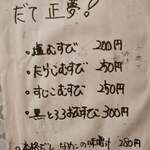 だて正夢!
・塩むすび 200円
・たらこむすび 250円
・すじこむすび 250円
・黒とろろおむすび 300円
・本格だし なめこの味噌汁 280円